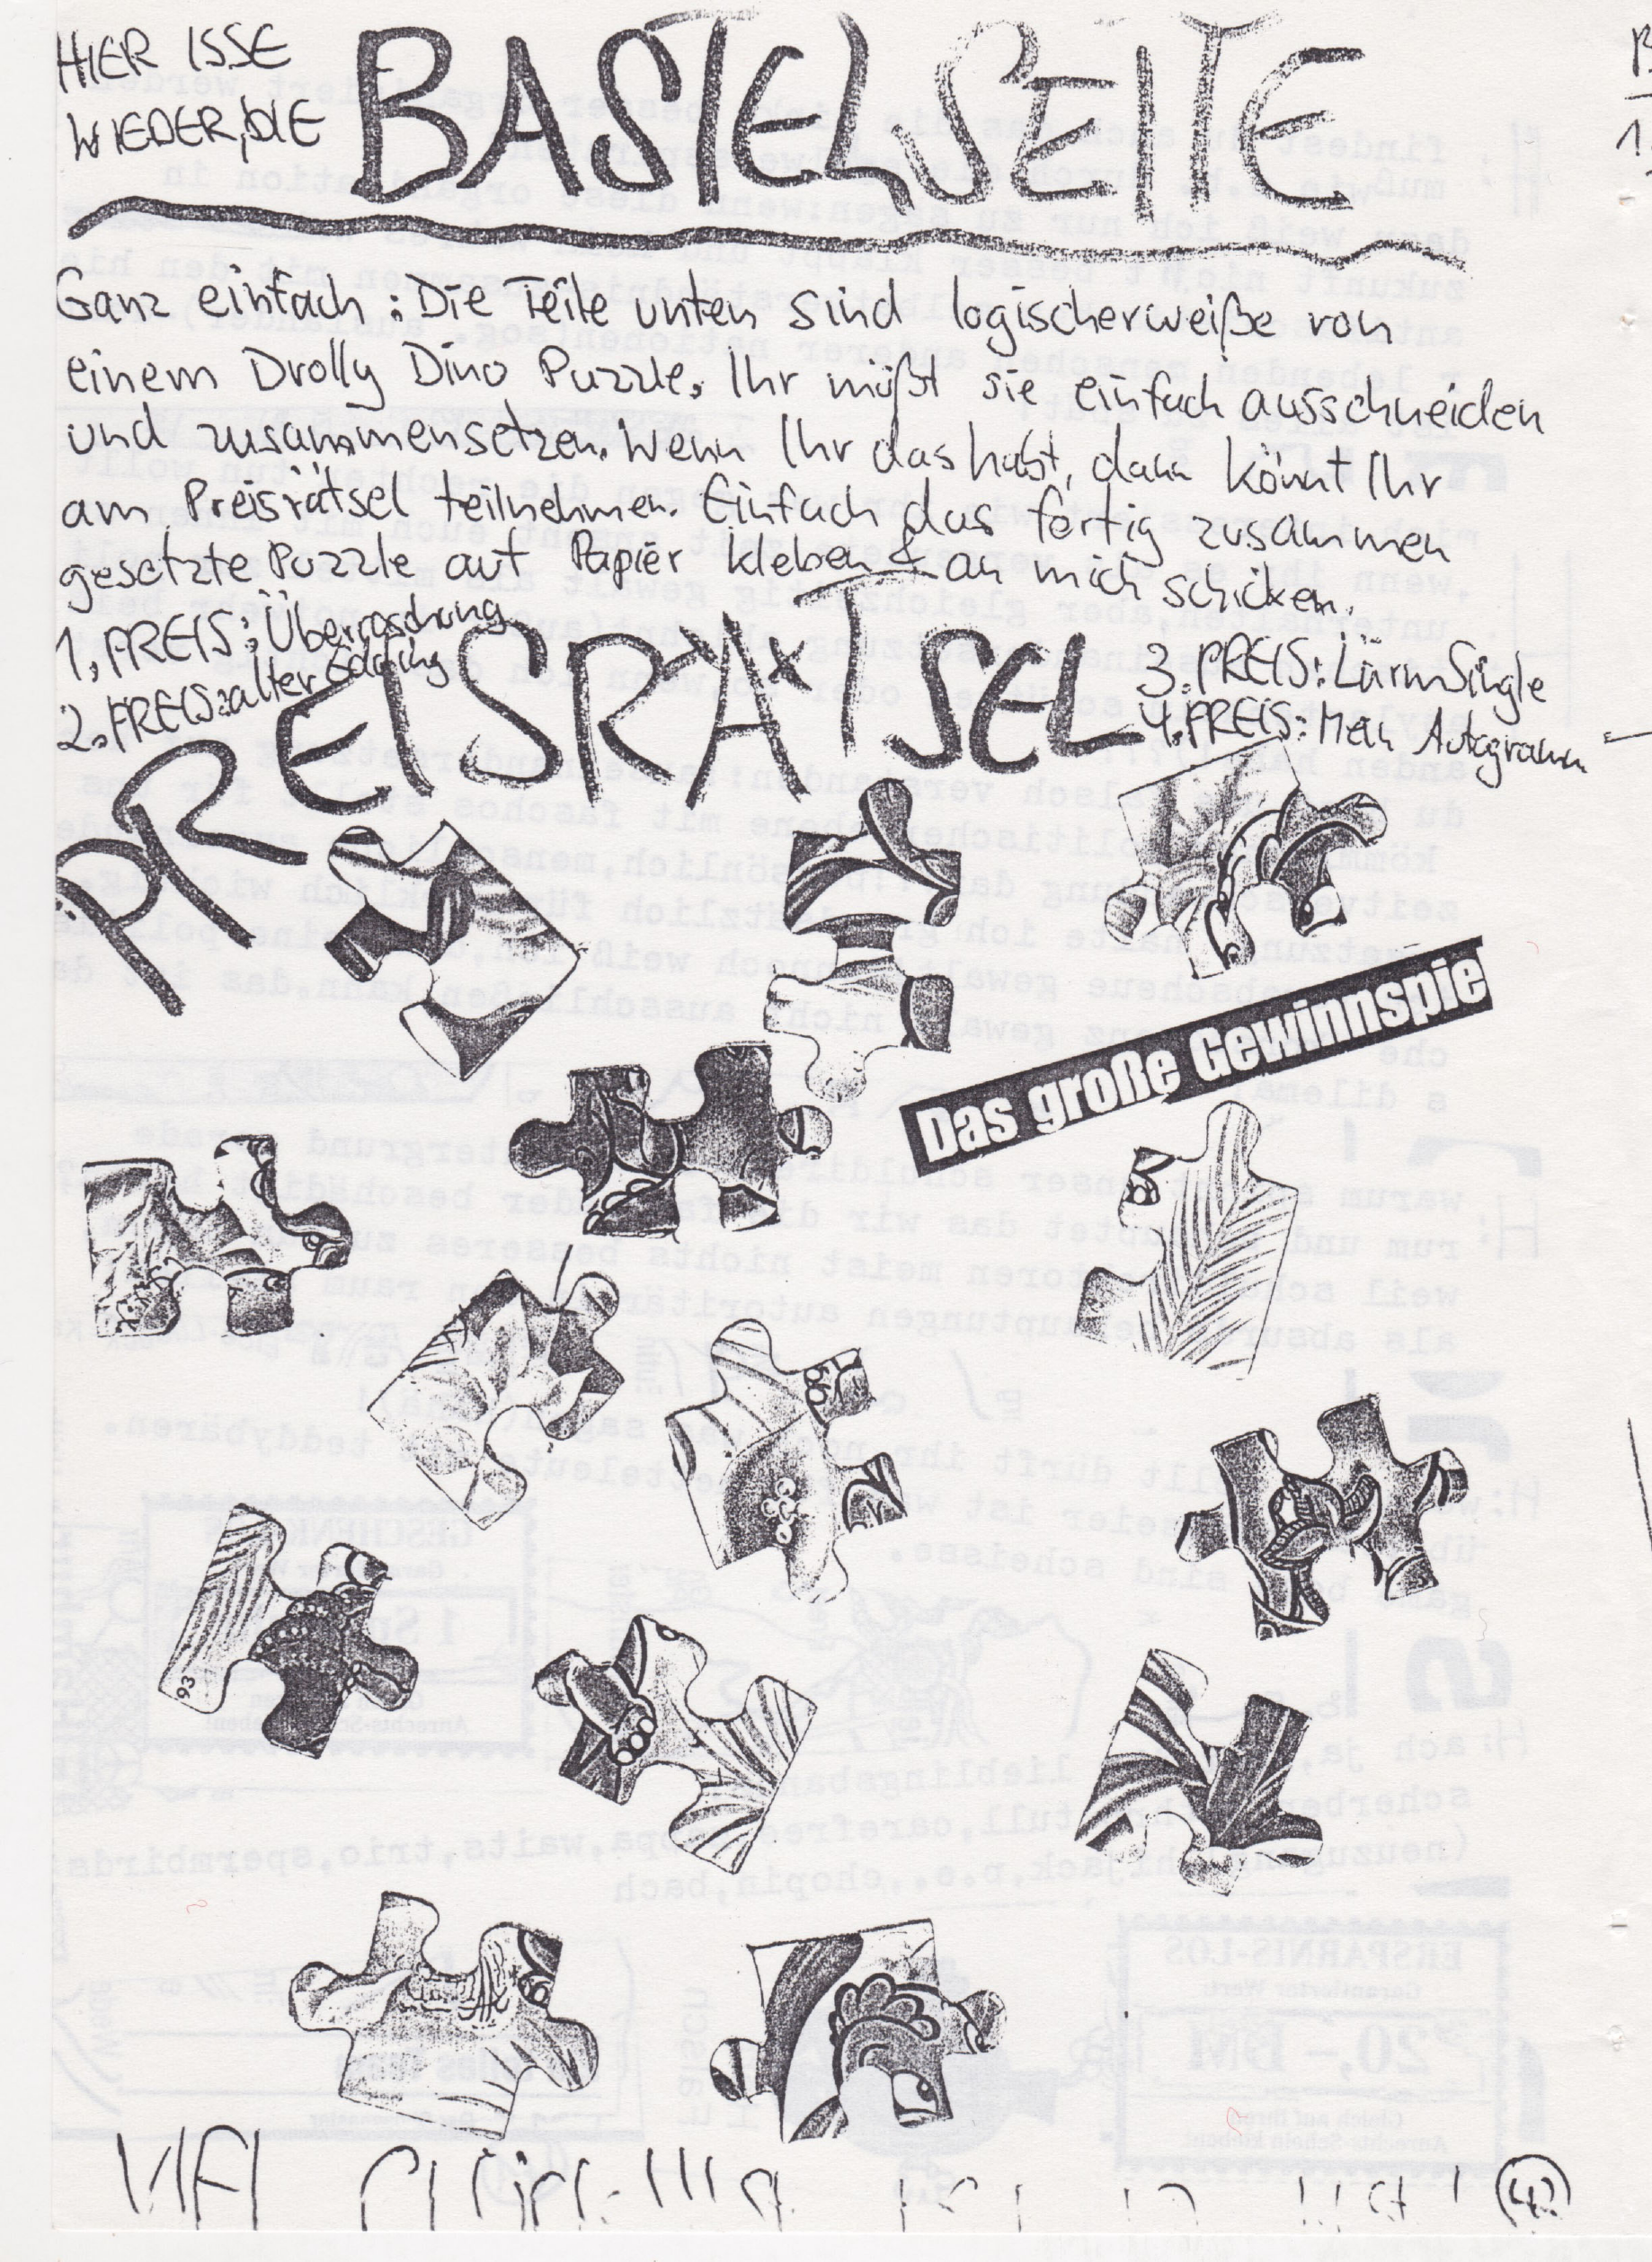 HIER ISSE
WIEDER, DIE
BASTELSEITE
Ganz einfach: Die Teile unten sind logischerweiße von
einem Drolly Dino Puzzle. Ihr müßt sie einfach ausschneiden
und zusammensetzen. Wenn Ihr das habt, dann könnt Ihr
am Preisrätsel teilnehmen. Einfach das fertig zusammen
gesetzte Puzzle auf Papier kleben & an mich schicken.
1. PREIS: Überraschung
2. PREIS: alter
PREISRÄTSEL
3. PREIS: LärmSingle
4. PREIS: Mein Autogramm
Das große Gewinnspie
93